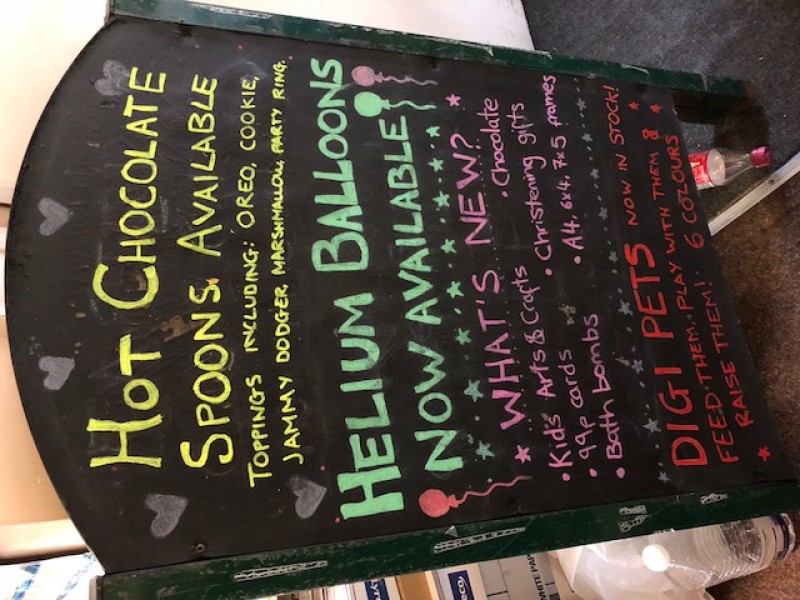 HOT CHOCOLATE
SPOONS AVAILABLE
TOPPINGS INCLUDING: OREO, COOKIE,
JAMMY DODGER, MARSHMALLOW, PARTY RING.
HELIUM BALLOONS
NOW AVAILABLE
WHAT'S NEW?
• Kids Arts & Crafts
• Chocolate
• 99p cards
• Christening gifts
• Bath bombs
• A4, 6x4, 7x5 frames
DIGI PETS NOW IN STOCK!
FEED THEM, PLAY WITH THEM &
RAISE THEM! 6 COLOURS
WHITE PAP